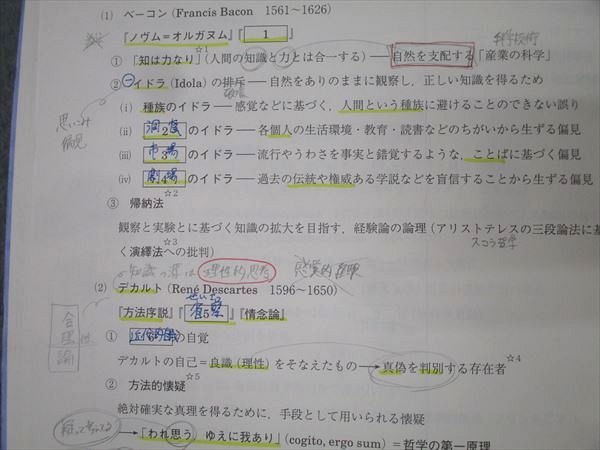 (1) ベーコン (Francis Bacon 1561～1626)
『ノヴム=オルガヌム』『 1 』
☆1
科学技術
① 「知は力なり」(人間の知識と力とは合一する)——自然を支配する「産業の科学」
② イドラ (Idola) の排斥——自然をありのままに観察し，正しい知識を得るため
思い込み
偏見
(i) 種族のイドラ——感覚などに基づく，人間という種族に避けることのできない誤り
(ii) 洞窟 2 のイドラ——各個人の生活環境・教育・読書などのちがいから生ずる偏見
(iii) 市場 3 のイドラ——流行やうわさを事実と錯覚するような，ことばに基づく偏見
(iv) 劇場 4 のイドラ——過去の伝統や権威ある学説などを盲信することから生ずる偏見
☆2
③ 帰納法
観察と実験とに基づく知識の拡大を目指す，経験論の論理 (アリストテレスの三段論法に基
スコラ哲学
く演繹法への批判)
☆3
知識の源は 理性的思考
(2) デカルト (René Descartes 1596～1650)
せいさつ
『方法序説』『省察 5 』『情念論』
合理論
① 近代的自我 6 の自覚
デカルトの自己＝良識 (理性) をそなえたもの→真偽を判別する存在者
☆4
② 方法的懐疑
☆5
絶対確実な真理を得るために，手段として用いられる懐疑
→「われ思う，ゆえに我あり」(cogito, ergo sum) ＝哲学の第一原理